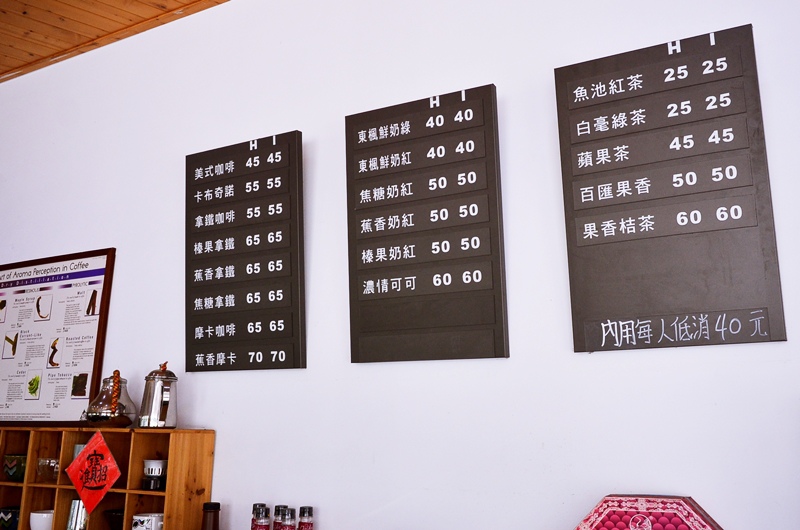 H I
美式咖啡 45 45
卡布奇諾 55 55
拿鐵咖啡 55 55
榛果拿鐵 65 65
蕉香拿鐵 65 65
焦糖拿鐵 65 65
摩卡咖啡 65 65
蕉香摩卡 70 70
H I
東楓鮮奶綠 40 40
東楓鮮奶紅 40 40
焦糖奶紅 50 50
蕉香奶紅 50 50
榛果奶紅 50 50
濃情可可 60 60
H I
魚池紅茶 25 25
白毫綠茶 25 25
蘋果茶 45 45
百匯果香 50 50
果香桔茶 60 60
內用每人低消40元
ct of Aroma Perception in Coffee
Dry Distillation